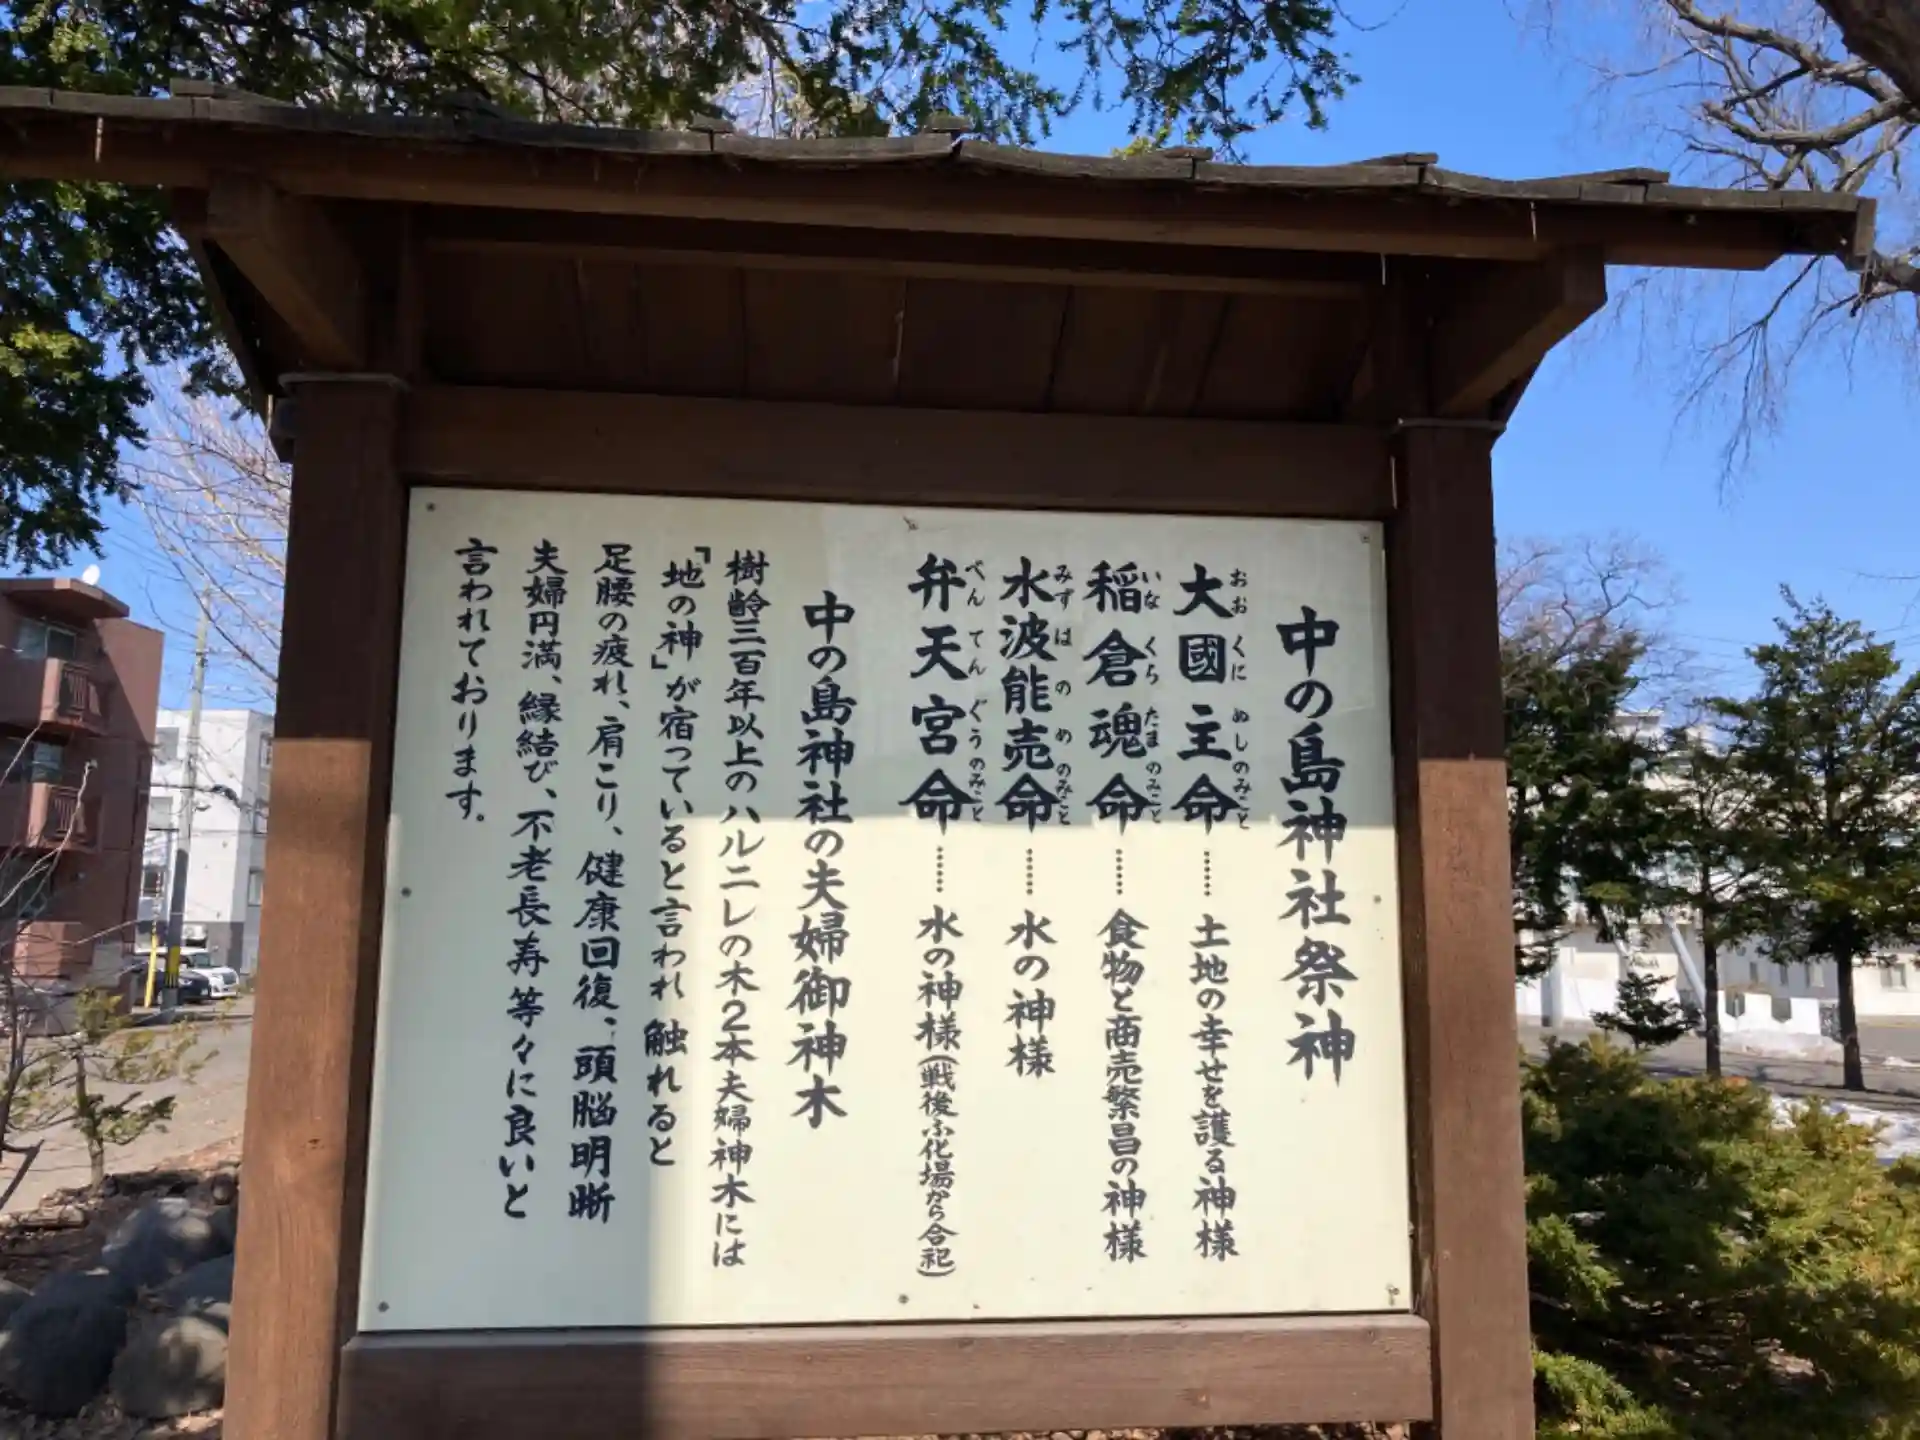 中の島神社祭神
大國主命……土地の幸せを護る神様
おおくにぬしのみこと
稲倉魂命……食物と商売繁昌の神様
いなくらたまのみこと
水波能売命……水の神様
みずはのめのみこと
弁天宮命……水の神様(戦後ふ化場から合祀)
べんてんぐうのみこと
中の島神社の夫婦御神木
樹齢三百年以上のハルニレの木2本夫婦神木には
「地の神」が宿っていると言われ触れると
足腰の疲れ、肩こり、健康回復、頭脳明晰
夫婦円満、縁結び、不老長寿等々に良いと
言われております。